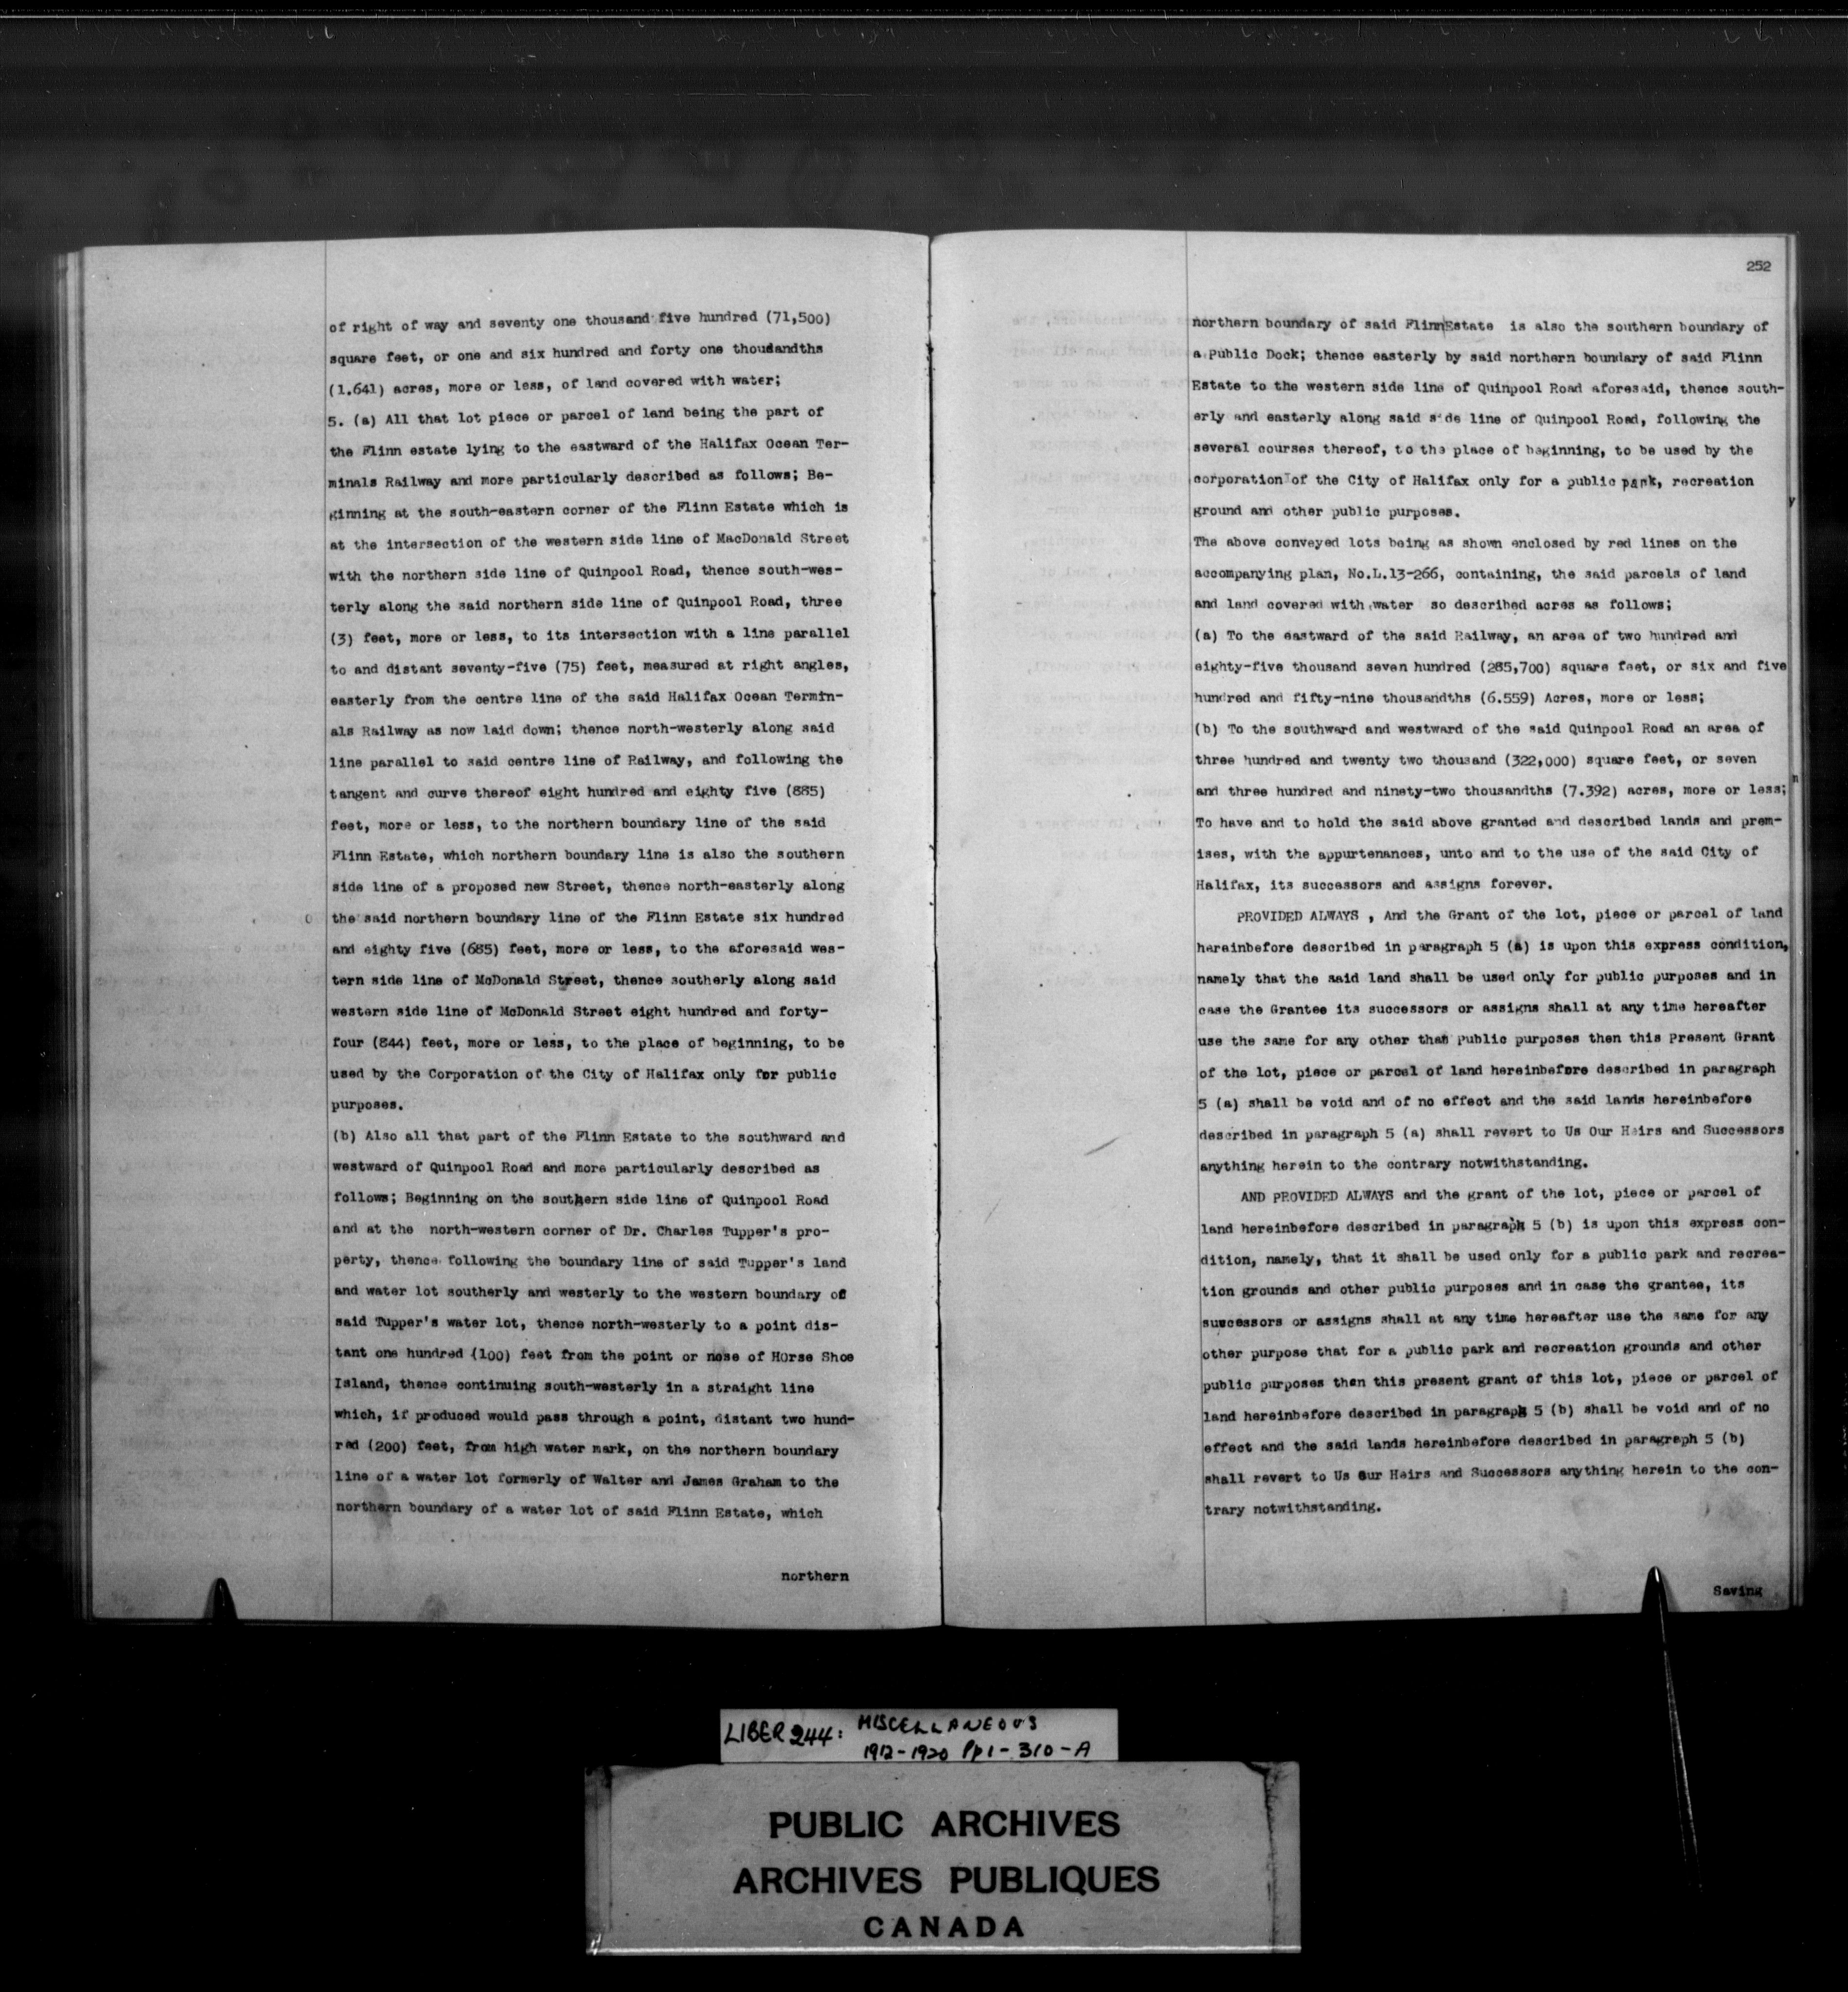 of right of way and seventy one thousand five hundred (71,500)
square feet, or one and six hundred and forty one thousandths
(1.641) acres, more or less, of land covered with water;
5. (a) All that lot piece or parcel of land being the part of
the Flinn estate lying to the eastward of the Halifax Ocean Ter-
minals Railway and more particularly described as follows; Be-
ginning at the south-eastern corner of the Flinn Estate which is
at the intersection of the western side line of MacDonald Street
with the northern side line of Quinpool Road, thence south-wes-
terly along the said northern side line of Quinpool Road, three
(3) feet, more or less, to its intersection with a line parallel
to and distant seventy-five (75) feet, measured at right angles,
easterly from the centre line of the said Halifax Ocean Termin-
als Railway as now laid down; thence north-westerly along said
line parallel to said centre line of Railway, and following the
tangent and curve thereof eight hundred and eighty five (885)
feet, more or less, to the northern boundary line of the said
Flinn Estate, which northern boundary line is also the southern
side line of a proposed new Street, thence north-easterly along
the said northern boundary line of the Flinn Estate six hundred
and eighty five (685) feet, more or less, to the aforesaid wes-
tern side line of McDonald Street, thence southerly along said
western side line of McDonald Street eight hundred and forty-
four (844) feet, more or less, to the place of beginning, to be
used by the Corporation of the City of Halifax only for public
purposes.
(b) Also all that part of the Flinn Estate to the southward and
westward of Quinpool Road and more particularly described as
follows; Beginning on the southern side line of Quinpool Road
and at the north-western corner of Dr. Charles Tupper's pro-
perty, thence following the boundary line of said Tupper's land
and water lot southerly and westerly to the western boundary of
said Tupper's water lot, thence north-westerly to a point dis-
tant one hundred (100) feet from the point or nose of Horse Shoe
Island, thence continuing south-westerly in a straight line
which, if produced would pass through a point, distant two hund-
red (200) feet, from high water mark, on the northern boundary
line of a water lot formerly of Walter and James Graham to the
northern boundary of a water lot of said Flinn Estate, which
northern
252
northern boundary of said Flinn Estate is also the southern boundary of
a Public Dock; thence easterly by said northern boundary of said Flinn
Estate to the western side line of Quinpool Road aforesaid, thence south-
erly and easterly along said side line of Quinpool Road, following the
several courses thereof, to the place of beginning, to be used by the
corporation of the City of Halifax only for a public park, recreation
ground and other public purposes.
The above conveyed lots being as shown enclosed by red lines on the
accompanying plan, No.L.13-266, containing, the said parcels of land
and land covered with water so described acres as follows;
(a) To the eastward of the said Railway, an area of two hundred and
eighty-five thousand seven hundred (285,700) square feet, or six and five
hundred and fifty-nine thousandths (6.559) Acres, more or less;
(b) To the southward and westward of the said Quinpool Road an area of
three hundred and twenty two thousand (322,000) square feet, or seven
and three hundred and ninety-two thousandths (7.392) acres, more or less;
To have and to hold the said above granted and described lands and prem-
ises, with the appurtenances, unto and to the use of the said City of
Halifax, its successors and assigns forever.
PROVIDED ALWAYS , And the Grant of the lot, piece or parcel of land
hereinbefore described in paragraph 5 (a) is upon this express condition,
namely that the said land shall be used only for public purposes and in
case the Grantee its successors or assigns shall at any time hereafter
use the same for any other than public purposes then this Present Grant
of the lot, piece or parcel of land hereinbefore described in paragraph
5 (a) shall be void and of no effect and the said lands hereinbefore
described in paragraph 5 (a) shall revert to Us Our Heirs and Successors
anything herein to the contrary notwithstanding.
AND PROVIDED ALWAYS and the grant of the lot, piece or parcel of
land hereinbefore described in paragraph 5 (b) is upon this express con-
dition, namely, that it shall be used only for a public park and recrea-
tion grounds and other public purposes and in case the grantee, its
successors or assigns shall at any time hereafter use the same for any
other purpose that for a public park and recreation grounds and other
public purposes then this present grant of this lot, piece or parcel of
land hereinbefore described in paragraph 5 (b) shall be void and of no
effect and the said lands hereinbefore described in paragraph 5 (b)
shall revert to Us Our Heirs and Successors anything herein to the con-
trary notwithstanding.
Saving
LIBER 244: MISCELLANEOUS
1912-1920 Pp 1-310-A
PUBLIC ARCHIVES
ARCHIVES PUBLIQUES
CANADA